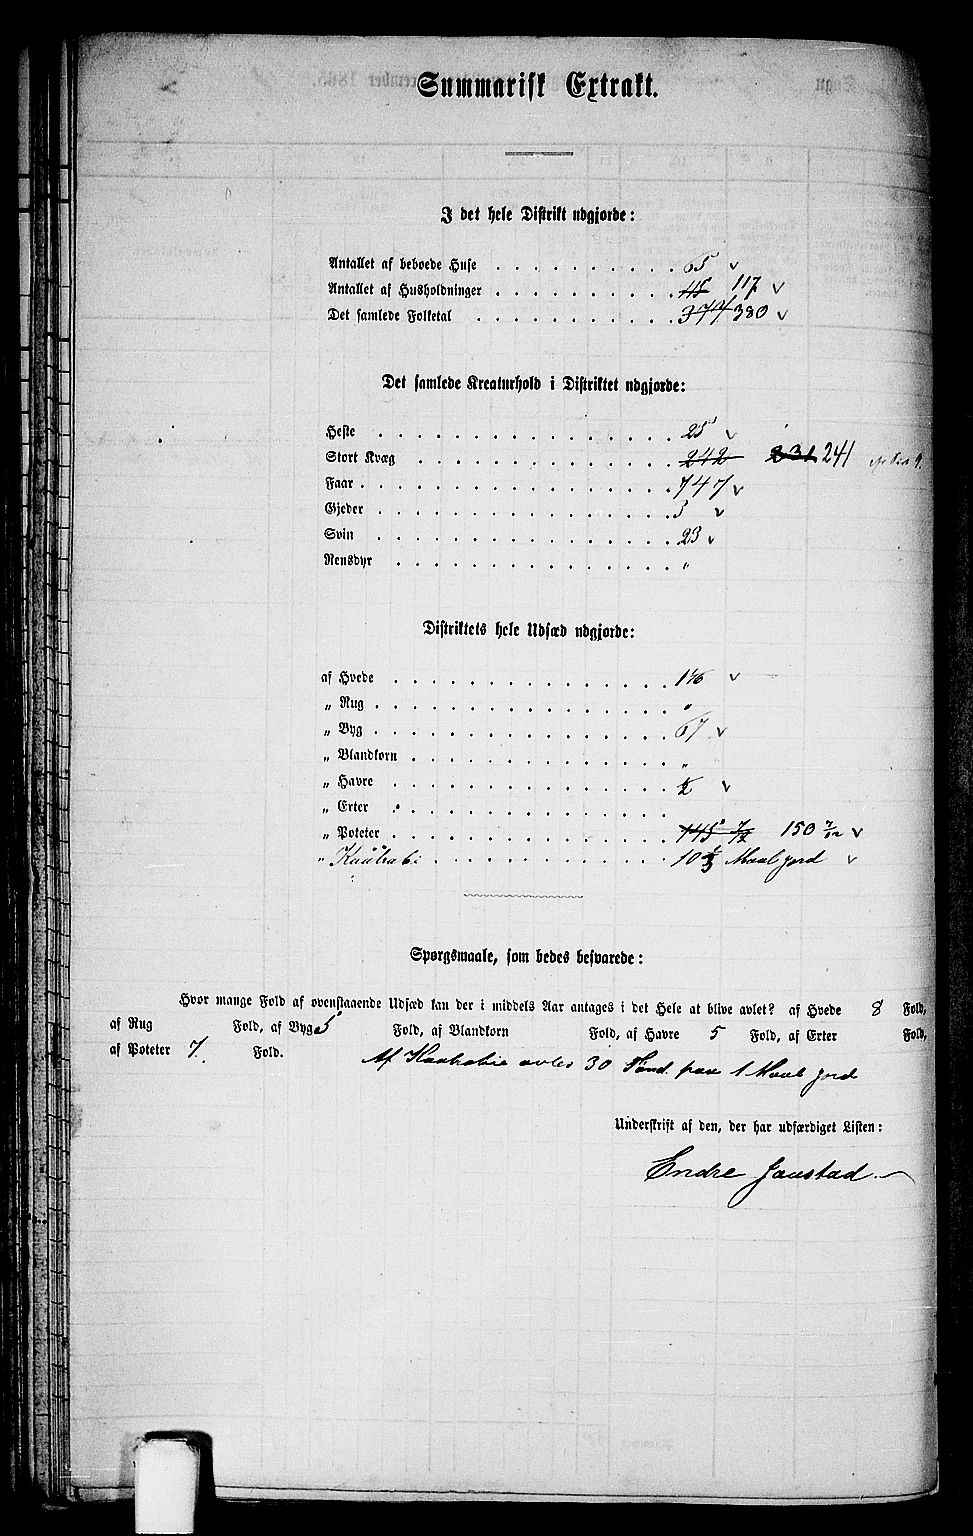 Summarisk Extrakt.
I det hele Distrikt udgjorde:
Antallet af beboede Huse . . . . . . . . . . 65 v
Antallet af Husholdninger . . . . . . . . . . 115 117 v
Det samlede Folketal . . . . . . . . . . . 377 380 v
Det samlede Kreaturhold i Distriktet udgjorde:
Heste . . . . . . . . . . . . . . . . 25 v
Stort Kvæg . . . . . . . . . . . . . . . 242 231 241
Faar . . . . . . . . . . . . . . . . . 747 v
Gjeder . . . . . . . . . . . . . . . . 3 v
Svin . . . . . . . . . . . . . . . . 23 v
Rensdyr . . . . . . . . . . . . . . . "
Distriktets hele Udsæd udgjorde:
af Hvede . . . . . . . . . . . . . . . v
„ Rug . . . . . . . . . . . . . . . . "
„ Byg . . . . . . . . . . . . . . . . 67 v
„ Blandkorn . . . . . . . . . . . . . . "
„ Havre . . . . . . . . . . . . . . . ½ v
„ Erter . . . . . . . . . . . . . . .
„ Poteter . . . . . . . . . . . . . . . 145 7/12 150 7/12 v
" Kaalrabi . . . . . . . . . . . . . 10 ⅓ Maal jord v
Spørgsmaale, som bedes besvarede:
Hvor mange Fold af ovenstaaende Udsæd kan der i middels Aar antages i det Hele at blive avlet? af Hvede 8 Fold,
af Rug Fold, af Byg 5 Fold, af Blandkorn Fold, af Havre 5 Fold, af Erter Fold,
af Poteter 7. Fold.
Af Kaalrabie avles 30 Tønd. paa 1 Maal jord
Underskrift af den, der har udfærdiget Listen:
Endre Jaastad